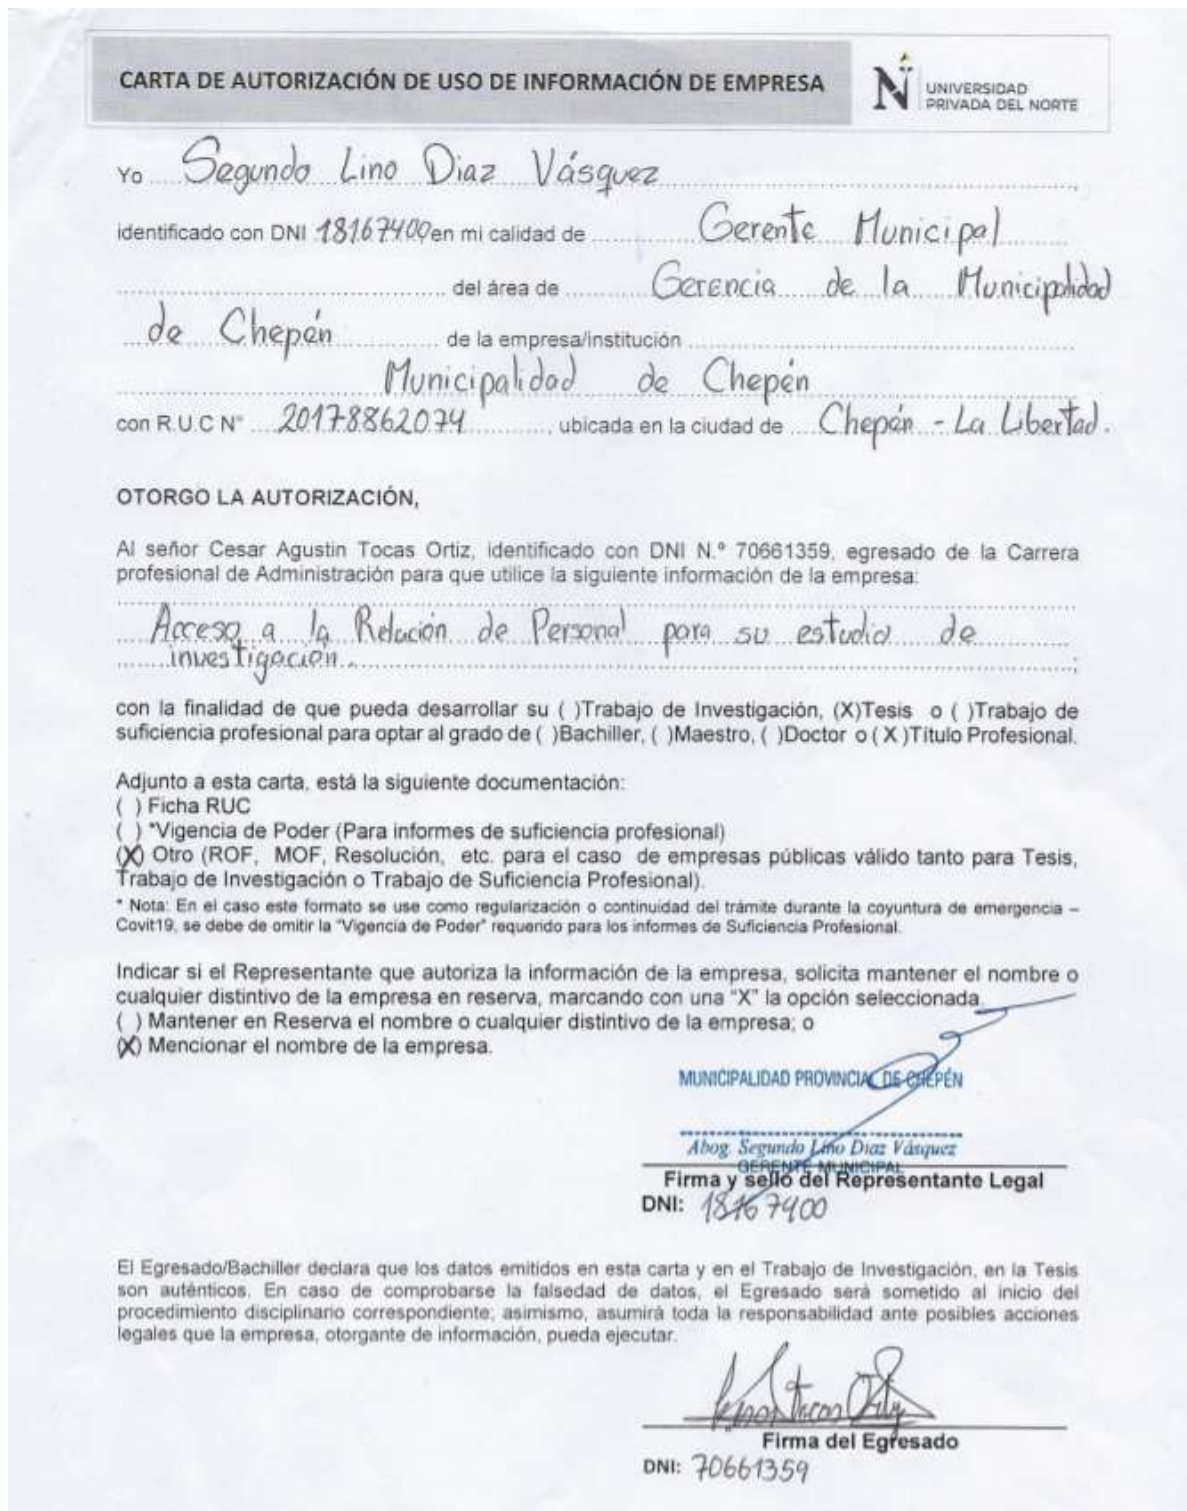 CARTA DE AUTORIZACIÓN DE USO DE INFORMACIÓN DE EMPRESA
UNIVERSIDAD
PRIVADA DEL NORTE
Yo Segundo Lino Diaz Vásquez
identificado con DNI 18167400 en mi calidad de Gerente Municipal
del área de Gerencia de la Municipalidad
de Chepén de la empresa/institución
Municipalidad de Chepén
con R.U.C N° 20178862074, ubicada en la ciudad de Chepén - La Libertad.
OTORGO LA AUTORIZACIÓN,
Al señor Cesar Agustin Tocas Ortiz, identificado con DNI N.º 70661359, egresado de la Carrera
profesional de Administración para que utilice la siguiente información de la empresa:
Acceso a la Relación de Personal para su estudio de
investigación.;
con la finalidad de que pueda desarrollar su ( )Trabajo de Investigación, (X)Tesis o ( )Trabajo de
suficiencia profesional para optar al grado de ( )Bachiller, ( )Maestro, ( )Doctor o ( X )Título Profesional.
Adjunto a esta carta, está la siguiente documentación:
( ) Ficha RUC
( ) *Vigencia de Poder (Para informes de suficiencia profesional)
(X) Otro (ROF, MOF, Resolución, etc. para el caso de empresas públicas válido tanto para Tesis,
Trabajo de Investigación o Trabajo de Suficiencia Profesional).
* Nota: En el caso este formato se use como regularización o continuidad del trámite durante la coyuntura de emergencia –
Covit19, se debe de omitir la "Vigencia de Poder" requerido para los informes de Suficiencia Profesional.
Indicar si el Representante que autoriza la información de la empresa, solicita mantener el nombre o
cualquier distintivo de la empresa en reserva, marcando con una "X" la opción seleccionada.
( ) Mantener en Reserva el nombre o cualquier distintivo de la empresa; o
(X) Mencionar el nombre de la empresa.
MUNICIPALIDAD PROVINCIAL DE CHEPÉN
Abog. Segundo Lino Diaz Vásquez
GERENTE MUNICIPAL
Firma y sello del Representante Legal
DNI: 18167400
El Egresado/Bachiller declara que los datos emitidos en esta carta y en el Trabajo de Investigación, en la Tesis
son auténticos. En caso de comprobarse la falsedad de datos, el Egresado será sometido al inicio del
procedimiento disciplinario correspondiente; asimismo, asumirá toda la responsabilidad ante posibles acciones
legales que la empresa, otorgante de información, pueda ejecutar.
Firma del Egresado
DNI: 70661359